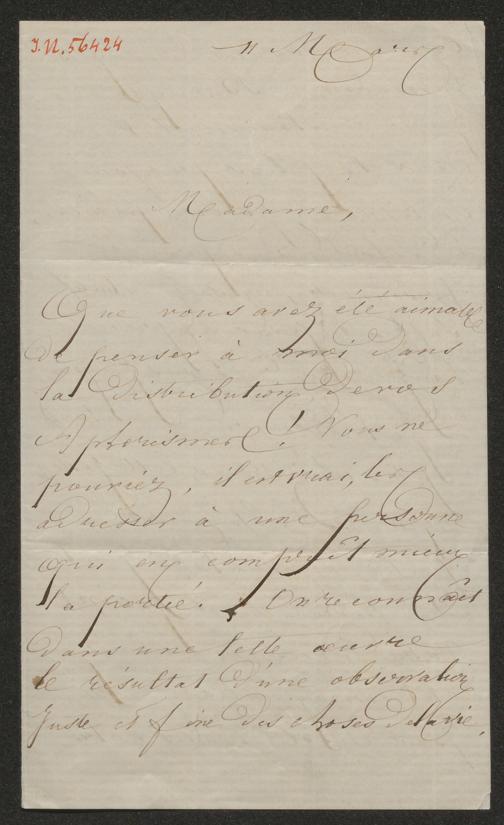 I.N. 56424
11 Mars
Madame,
Que vous avez été aimable
de penser à moi dans
la distribution de vos
Aphorismes! Vous ne
pouriéz, il est vrai, les
adresser à une personne
qui en comprît mieux
la portée. On reconnaît
dans une telle œuvre
le résultat d'une observation
juste et fine des choses de la vie,